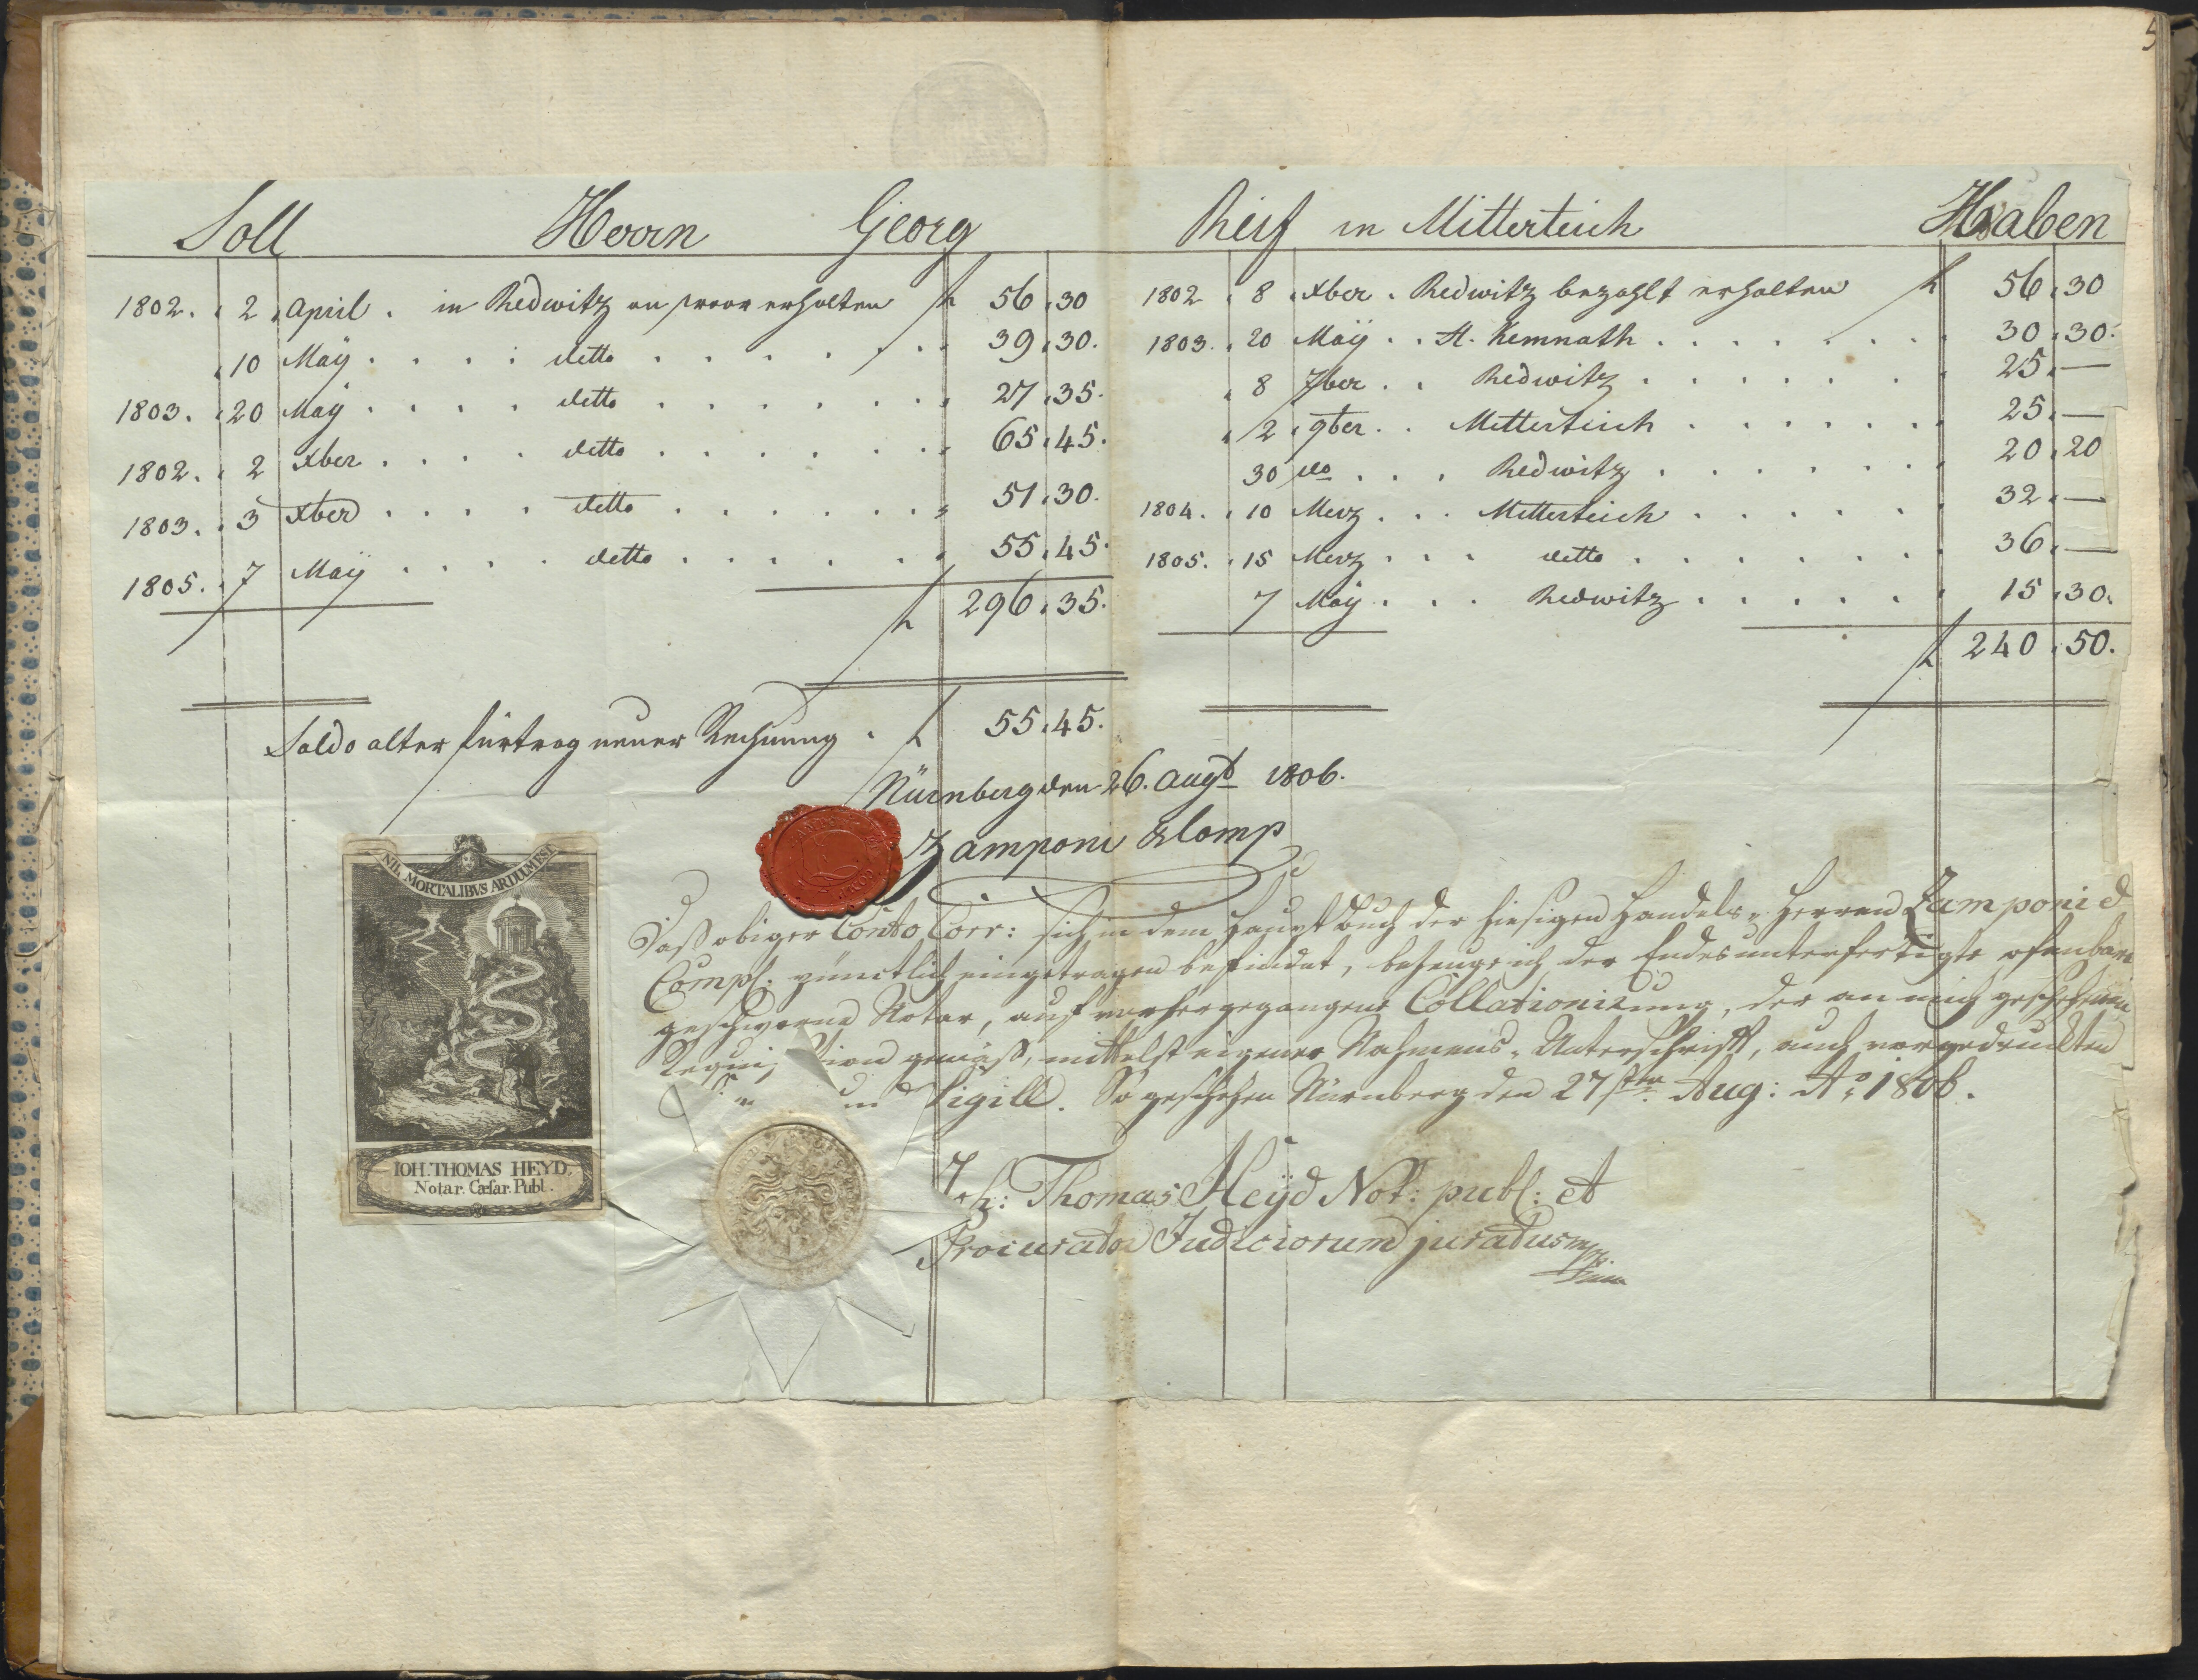 5
Soll Herrn Georg Reif in Mitterteich Haaben
1802. 2 April . in Redwitz an waar erhalten f 56 30
10 Maÿ . . . . detto . . . . . . 39 30.
1803. 20 Maÿ . . . . detto . . . . . . 27 35.
1802. 2 Xber . . . . detto . . . . . . 65 45.
1803. 3 Xber . . . . detto . . . . . . 51 30.
1805. 7 Maÿ . . . . detto . . . . . . 55 45.
f 296 35.
Saldo alter fürtrag neuer Rechnung . f 55 45.
1802 8 Xber . Redwitz bezahlt erhalten f 56 30
1803. 20 Maÿ . . St. Kemnath . . . . . . 30 30.
8 7ber . . Redwitz . . . . . . 25 —
2 9ber . . Mitterteich . . . . . . 25 —
30 do . . . Redwitz . . . . . . 20 20
1804. 10 Merz . . . Mitterteich . . . . . . 32 —
1805. 15 Merz . . . detto . . . . . . 36 —
7 Maÿ . . . Redwitz . . . . . . 15 30.
f 240 50.
Nürnberg den 26. Augt 1806.
Zamponi & Comp
Daß obiger Conto Corr: sich in dem Hauptbuch der hiesigen Handels-Herren Zamponi &
Comp: pünctlich eingetragen befindet, bezeuge ich der Endesunterfertigte ofenbare
geschworne Notar, auf vorhergegangene Collationirung, der an mich geschehenen
Requisition gemäß, mittelst eigener Nahmens-Unterschrift, auch vorgedruckten
Sigill. So geschehen Nürnberg den 27sten Aug: Ao 1806.
Joh: Thomas Heÿd Not: publ: et
Procurator Judiciorum juratus mpr.
NIL MORTALIBVS ARDUUM EST.
IOH. THOMAS HEYD,
Notar. Cæsar. Publ.